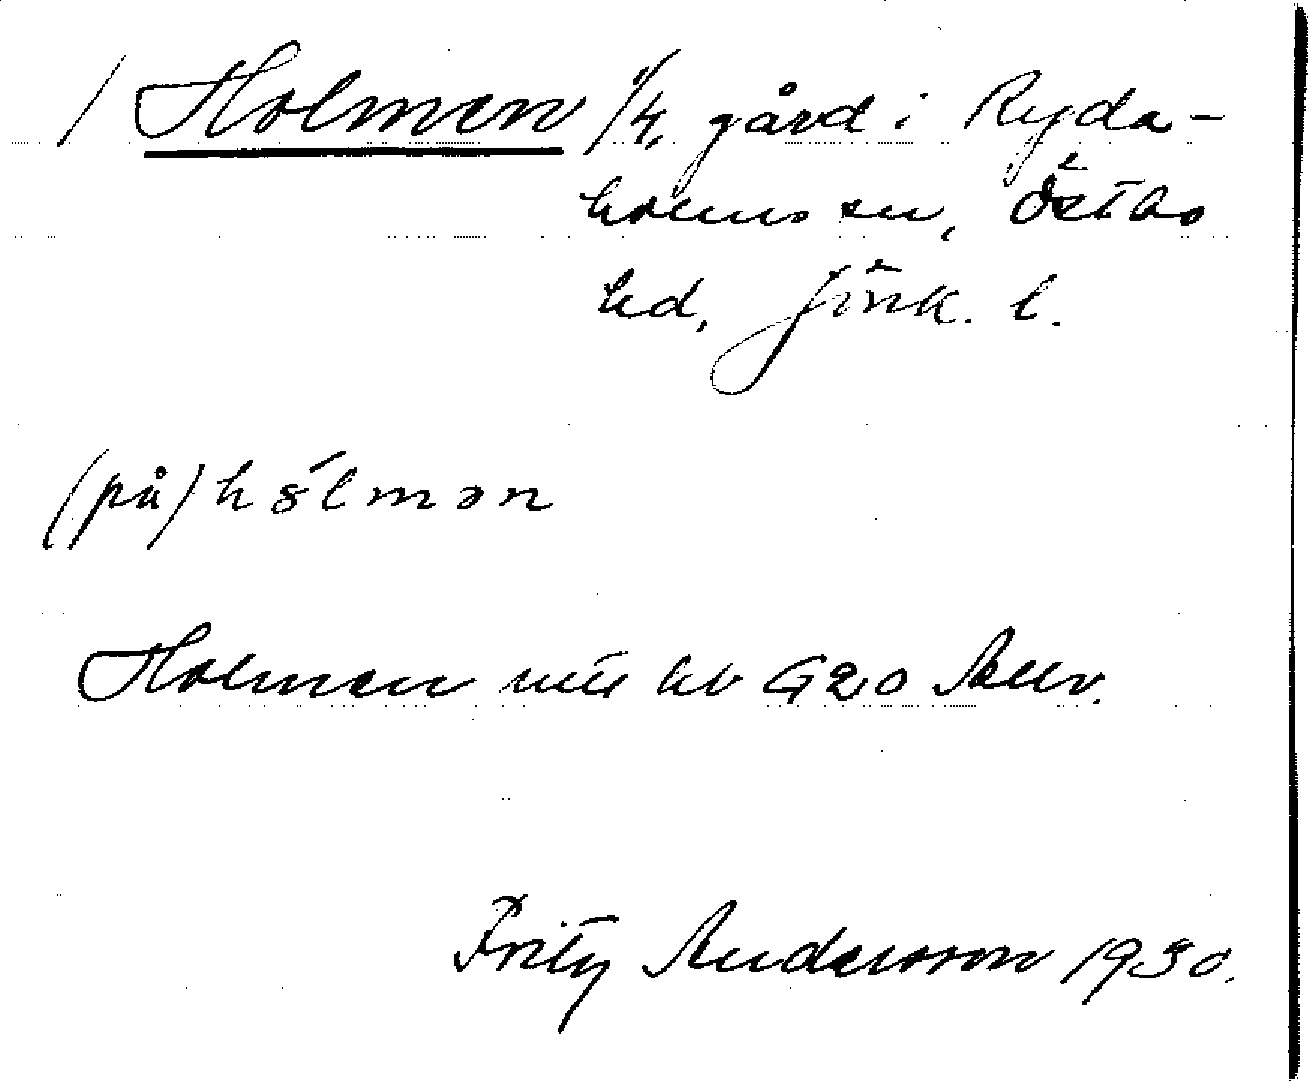 / Holmen 1/4 gård i Ryda-
holms sn, Östbo
hd, Jönk. l.
(på) hólmən
Holmen utj hb G20 Allv.
Fritz Andersson 1930.